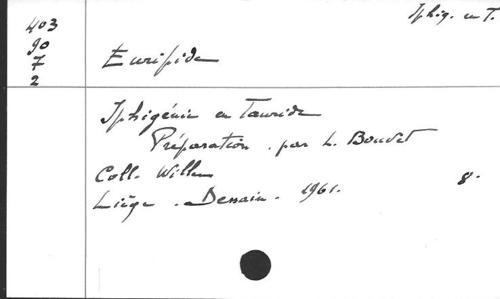 Iphig. en T.
403
90
7
2
Euripide
Iphigénie en Tauride
Préparation. par L. Boudet
Coll. Willem
Liège. Dessain. 1961. 8.